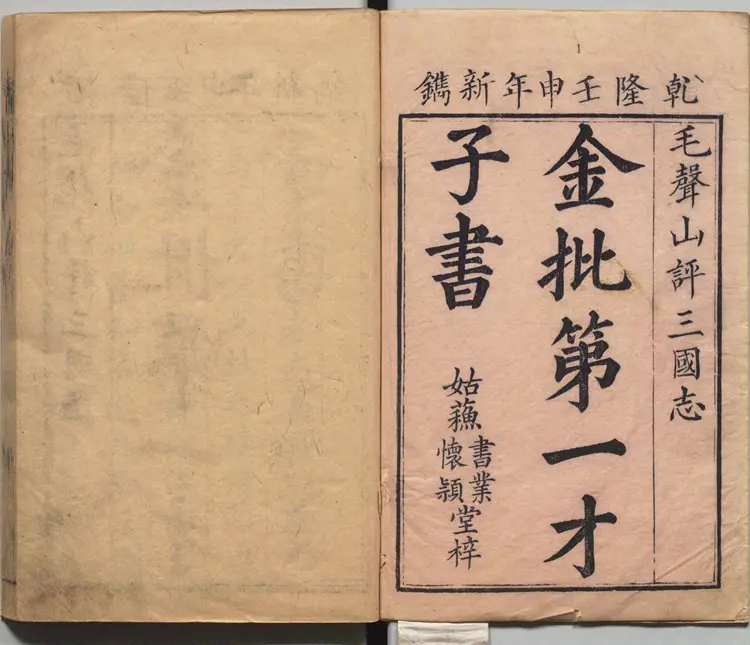 乹隆壬申年新鐫
毛聲山評三國志
金批第一才
子書
姑蘓
書業
懷頴
堂梓